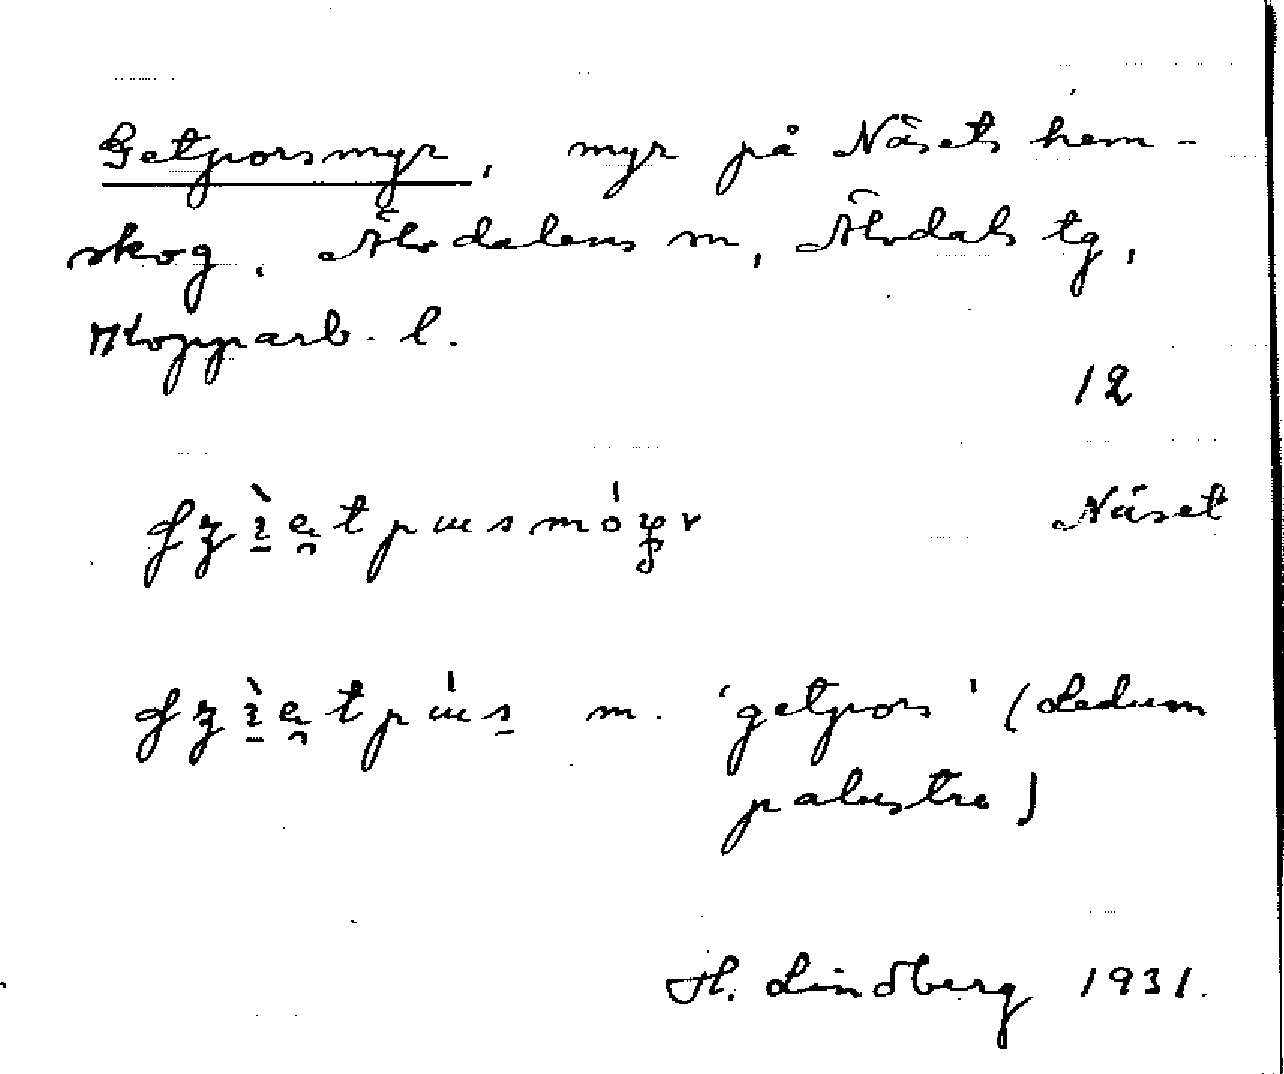 Getporsmyr, myr på Näsets hem-
skog. Älvdalens sn, Älvdals tg,
Kopparb. l.
12
Näset
m. 'getpors' (Ledum
palustre)
H. Lindberg 1931.